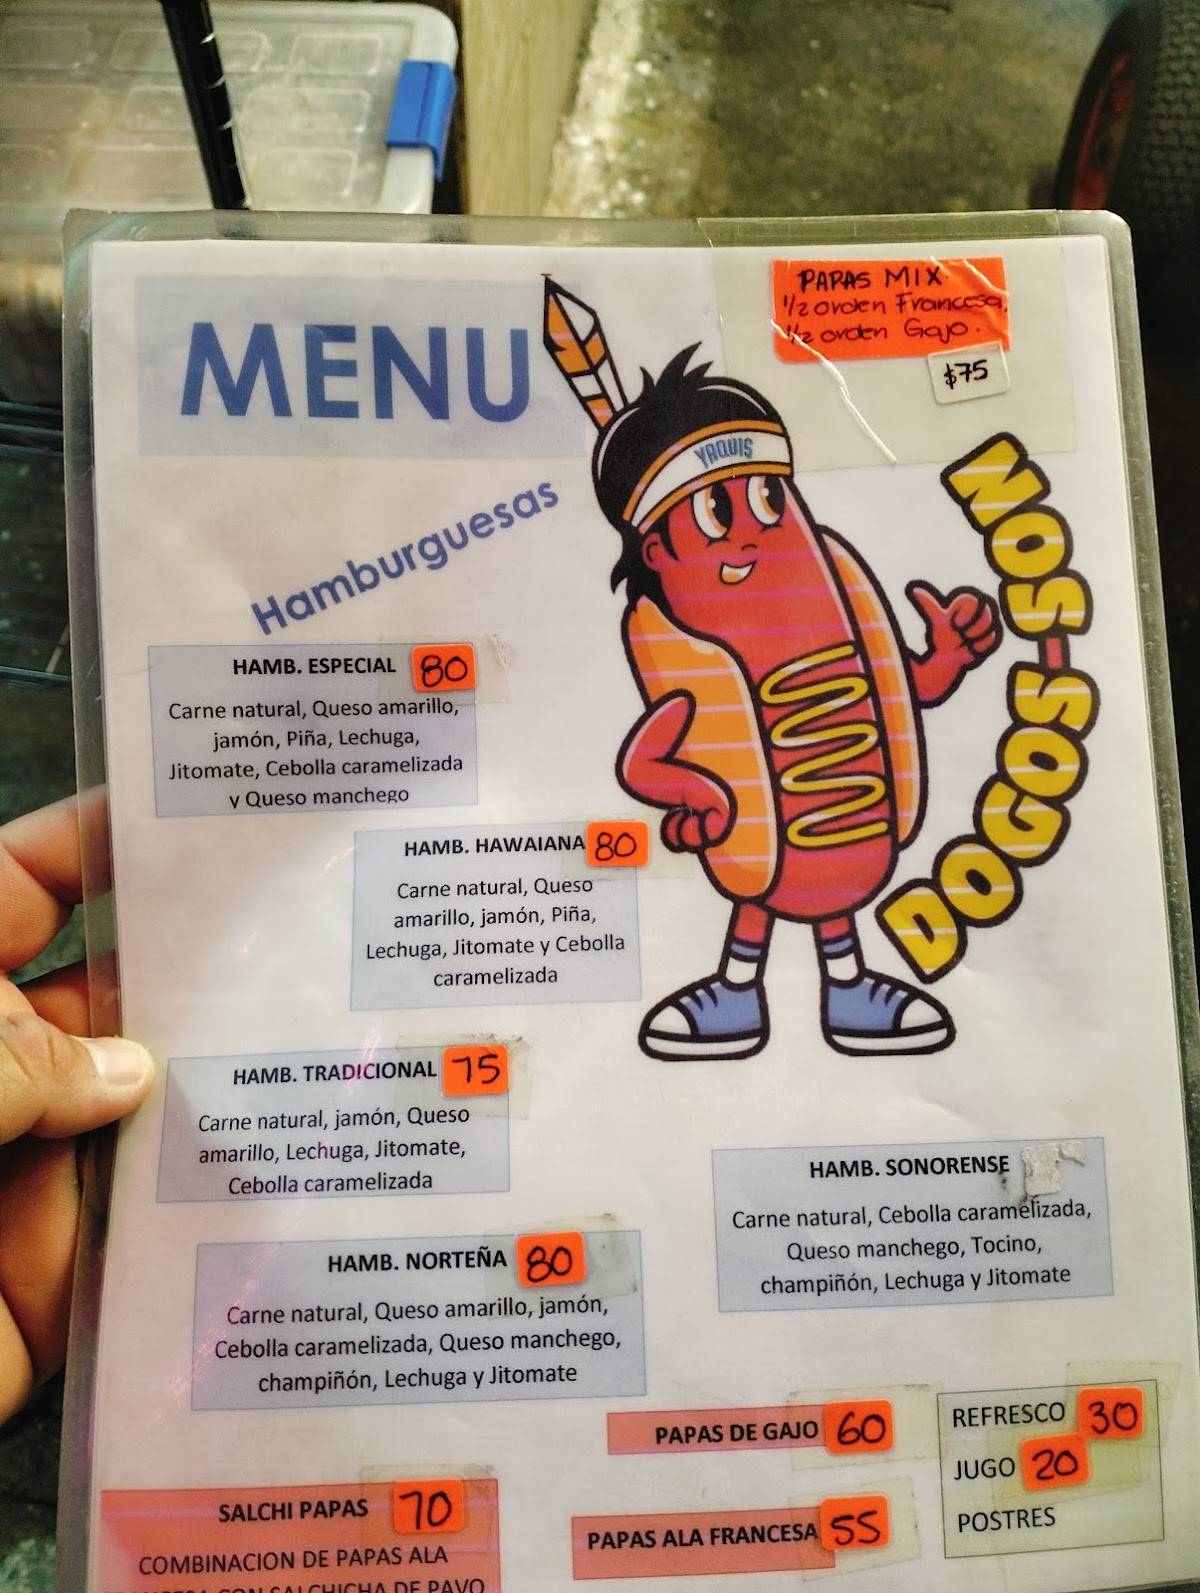 MENU
PAPAS MIX.
1/2 orden Francesa,
1/2 orden Gajo.
$75
YAQUIS
DOGOS-SON
Hamburguesas
HAMB. ESPECIAL 80
Carne natural, Queso amarillo,
jamón, Piña, Lechuga,
Jitomate, Cebolla caramelizada
y Queso manchego
HAMB. HAWAIANA 80
Carne natural, Queso
amarillo, jamón, Piña,
Lechuga, Jitomate y Cebolla
caramelizada
HAMB. TRADICIONAL 75
Carne natural, jamón, Queso
amarillo, Lechuga, Jitomate,
Cebolla caramelizada
HAMB. SONORENSE
Carne natural, Cebolla caramelizada,
Queso manchego, Tocino,
champiñón, Lechuga y Jitomate
HAMB. NORTEÑA 80
Carne natural, Queso amarillo, jamón,
Cebolla caramelizada, Queso manchego,
champiñón, Lechuga y Jitomate
PAPAS DE GAJO 60
REFRESCO 30
JUGO 20
POSTRES
SALCHI PAPAS 70
COMBINACION DE PAPAS ALA
CON SALCHICHA DE PAVO
PAPAS ALA FRANCESA 55